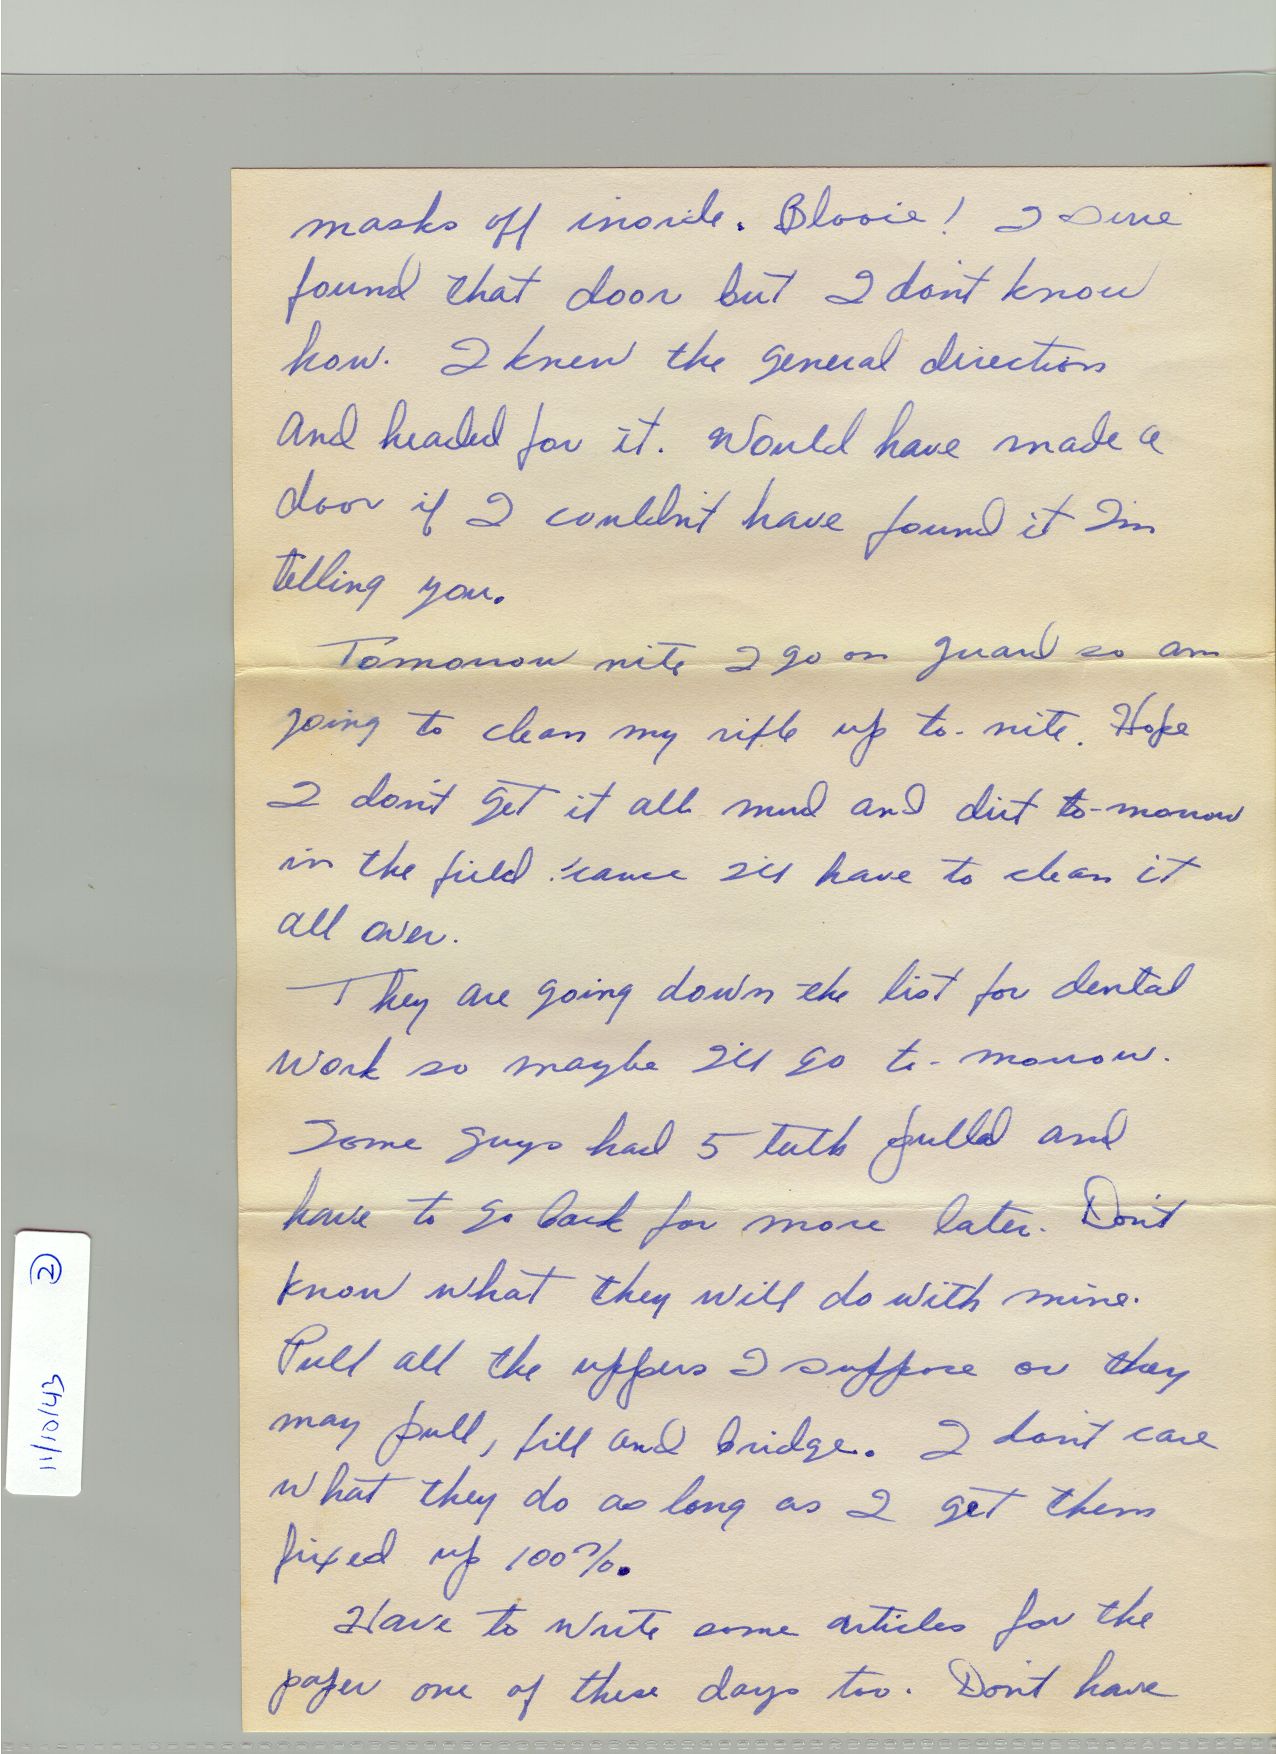 masks off inside. Blooie! I sure
found that door but I don't know
how. I knew the general direction
and headed for it. Would have made a
door if I couldn't have found it I'm
telling you.
Tomorrow nite I go on guard so am
going to clean my rifle up to-nite. Hope
I don't get it all mud and dirt to-morrow
in the field 'cause I'll have to clean it
all over.
They are going down the list for dental
work so maybe I'll go to-morrow.
Some guys had 5 teeth pulled and
have to go back for more later. Don't
know what they will do with mine.
Pull all the uppers I suppose or they
may pull, fill and bridge. I don't care
what they do as long as I get them
fixed up 100%.
Have to write some articles for the
paper one of these days too. Don't have
11/10/43 ②